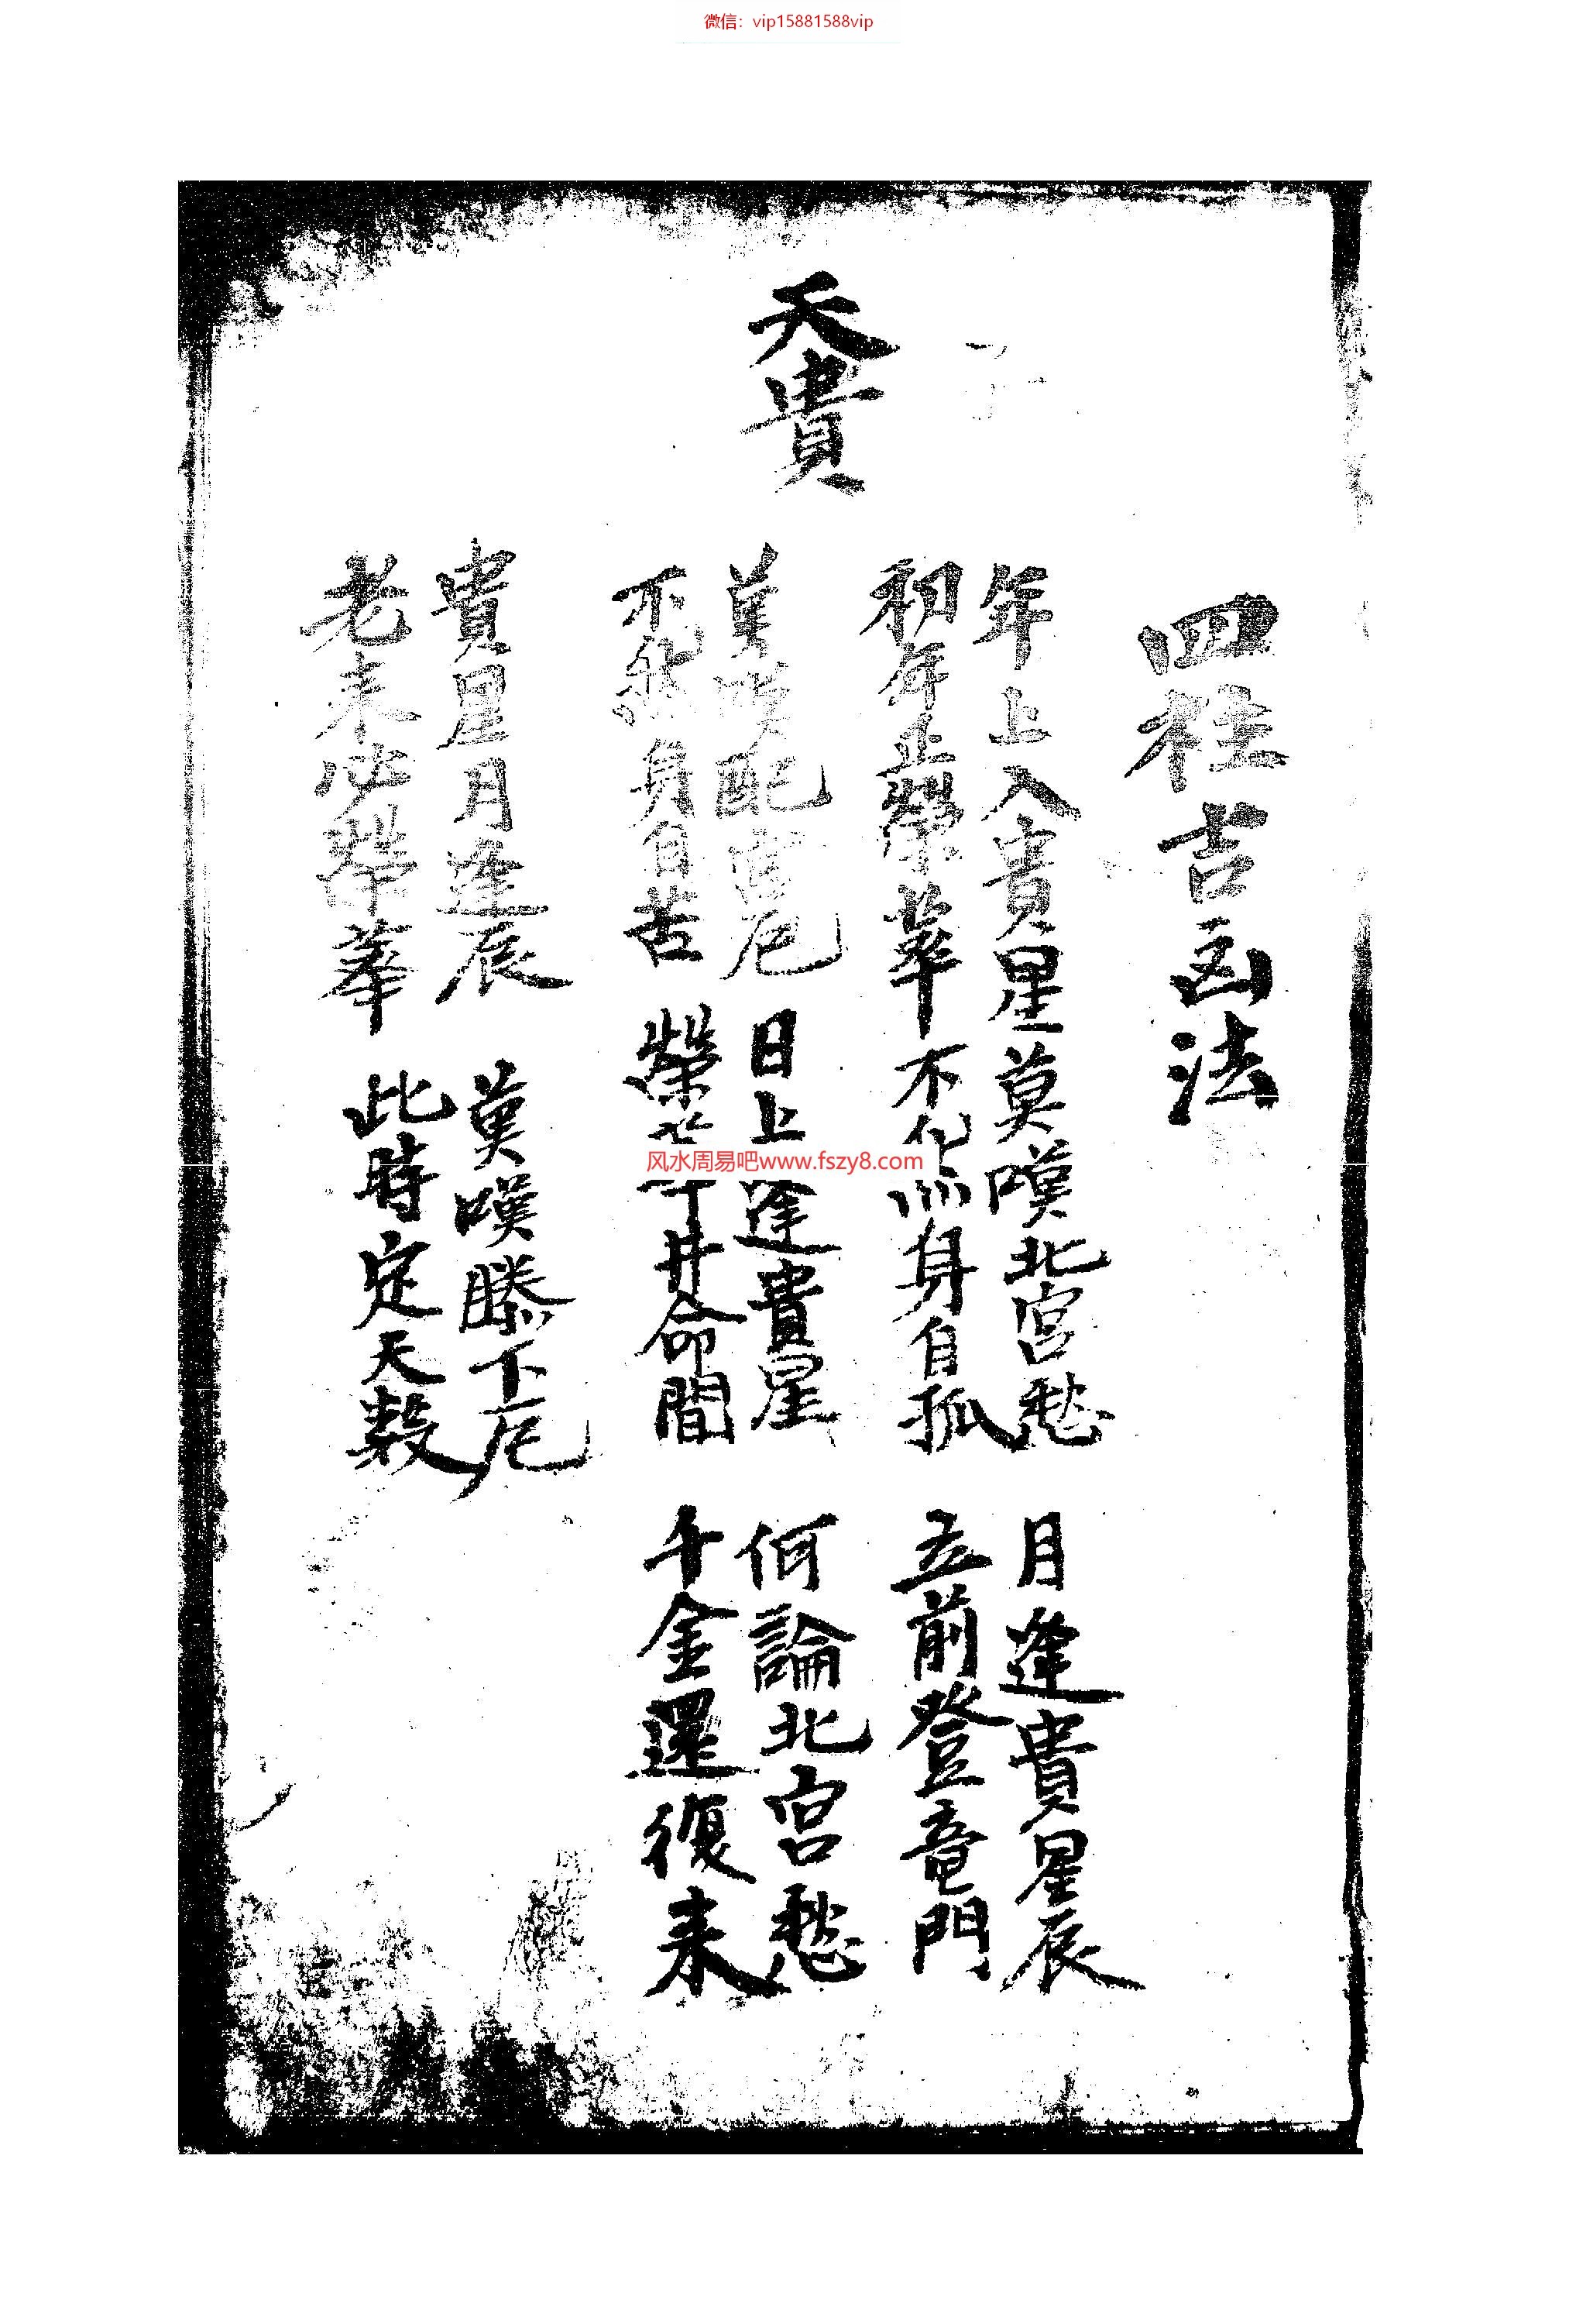 微信：vip15881588vip
四柱吉凶法
天貴
年上入貴星莫嘆北宮愁 月逢貴星辰
初年並榮華不然身自孤 立前登竜門
莫嘆配宮厄 日上逢貴星 何論北宮愁
不然身自苦 榮華井命間 千金還復来
貴星月逢辰 莫嘆膝下厄
老来必榮華 此時定天数
风水周易吧www.fszy8.com